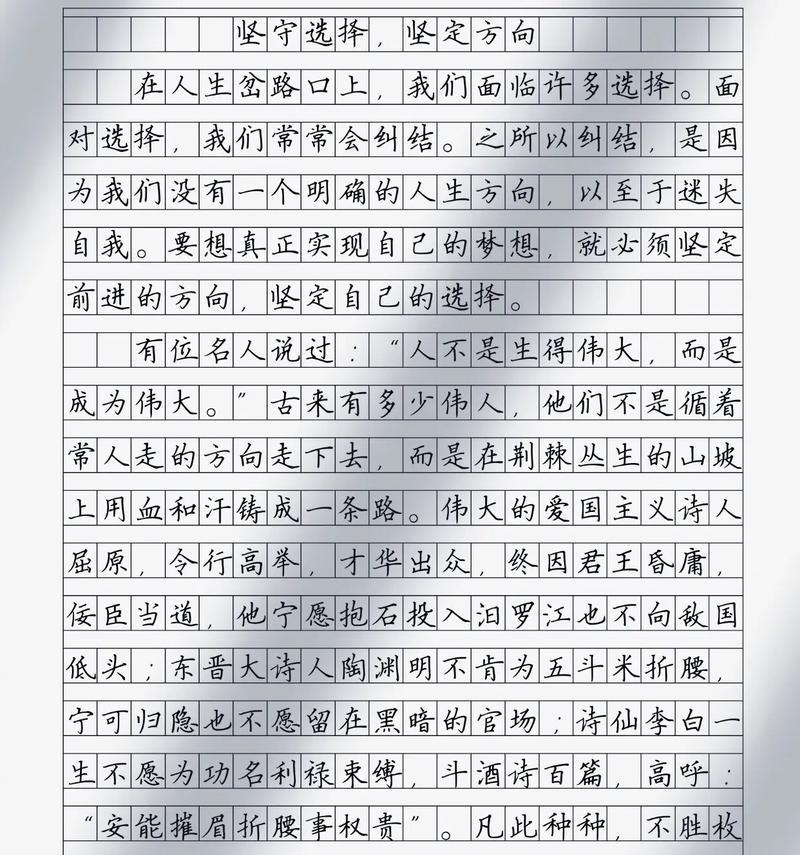 坚守选择，坚定方向
在人生岔路口上，我们面临许多选择。面
对选择，我们常常会纠结。之所以纠结，是因
为我们没有一个明确的人生方向，以至于迷失
自我。要想真正实现自己的梦想，就必须坚定
前进的方向，坚定自己的选择。
有位名人说过：“人不是生得伟大，而是
成为伟大。”古来有多少伟人，他们不是循着
常人走的方向走下去，而是在荆棘丛生的山坡
上用血和汗铸成一条路。伟大的爱国主义诗人
屈原，令行高举，才华出众，终因君王昏庸，
佞臣当道，他宁愿抱石投入汨罗江也不向敌国
低头；东晋大诗人陶渊明不肯为五斗米折腰，
宁可归隐也不愿留在黑暗的官场；诗仙李白一
生不愿为功名利禄束缚，斗酒诗百篇，高呼：
“安能摧眉折腰事权贵”。凡此种种，不胜枚